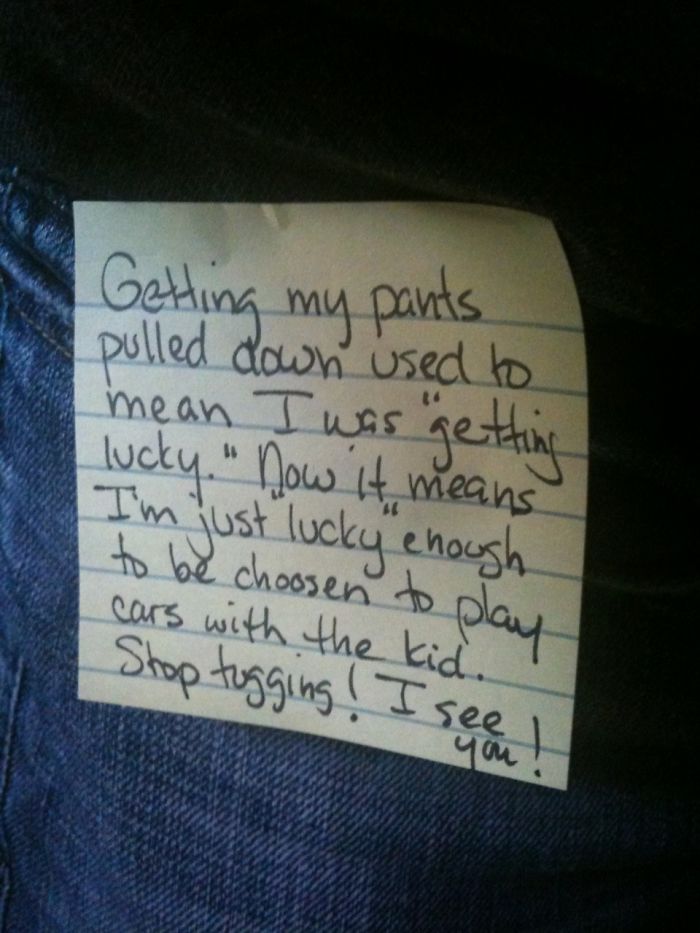 Getting my pants
pulled down used to
mean I was "getting
lucky." Now it means
I'm just "lucky" enough
to be choosen to play
cars with the kid.
Stop tugging! I see
you!